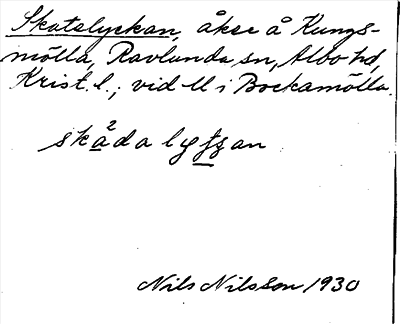 Skatalyckan, åker å Kungs-
mölla, Ravlunda sn, Albo hd,
Krist. l.; vid ll i Bockamölla.
skå²da ly
Nils Nilsson 1930